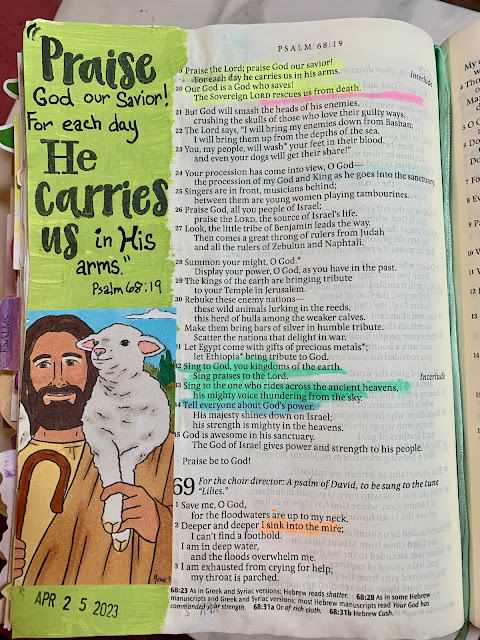 "Praise
God our Savior!
For each day
He
Carries
us in His
arms."
Psalm 68:19
APR 25 2023
PSALM 68:19
19 Praise the Lord; praise God our savior!
For each day he carries us in his arms. Interlude
20 Our God is a God who saves!
The Sovereign LORD rescues us from death.
21 But God will smash the heads of his enemies,
crushing the skulls of those who love their guilty ways.
22 The Lord says, "I will bring my enemies down from Bashan;
I will bring them up from the depths of the sea.
23 You, my people, will wash* your feet in their blood,
and even your dogs will get their share!"
24 Your procession has come into view, O God—
the procession of my God and King as he goes into the sanctuary.
25 Singers are in front, musicians behind;
between them are young women playing tambourines.
26 Praise God, all you people of Israel;
praise the LORD, the source of Israel's life.
27 Look, the little tribe of Benjamin leads the way.
Then comes a great throng of rulers from Judah
and all the rulers of Zebulun and Naphtali.
28 Summon your might, O God.*
Display your power, O God, as you have in the past.
29 The kings of the earth are bringing tribute
to your Temple in Jerusalem.
30 Rebuke these enemy nations—
these wild animals lurking in the reeds,
this herd of bulls among the weaker calves.
Make them bring bars of silver in humble tribute.
Scatter the nations that delight in war.
31 Let Egypt come with gifts of precious metals*;
let Ethiopia* bring tribute to God.
32 Sing to God, you kingdoms of the earth.
Sing praises to the Lord. Interlude
33 Sing to the one who rides across the ancient heavens,
his mighty voice thundering from the sky.
34 Tell everyone about God's power.
His majesty shines down on Israel;
his strength is mighty in the heavens.
35 God is awesome in his sanctuary.
The God of Israel gives power and strength to his people.
Praise be to God!
69 For the choir director: A psalm of David, to be sung to the tune
"Lilies."
1 Save me, O God,
for the floodwaters are up to my neck.
2 Deeper and deeper I sink into the mire;
I can't find a foothold.
I am in deep water,
and the floods overwhelm me.
3 I am exhausted from crying for help;
my throat is parched.
68:23 As in Greek and Syriac versions; Hebrew reads shatter. 68:28 As in some Hebrew
manuscripts and Greek and Syriac versions; most Hebrew manuscripts read Your God has
commanded your strength. 68:31a Or of rich cloth. 68:31b Hebrew Cush.